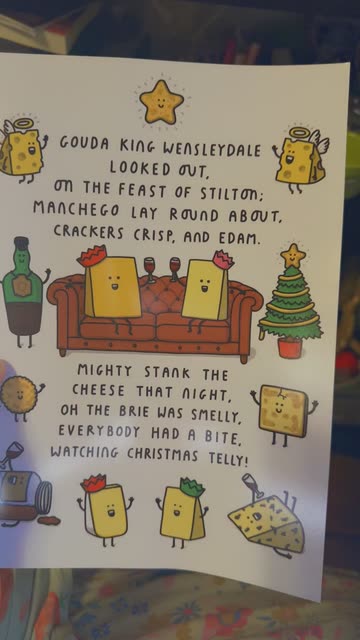 GOUDA KING WENSLEYDALE
LOOKED OUT,
ON THE FEAST OF STILTON;
MANCHEGO LAY ROUND ABOUT,
CRACKERS CRISP, AND EDAM.
MIGHTY STANK THE
CHEESE THAT NIGHT,
OH THE BRIE WAS SMELLY,
EVERYBODY HAD A BITE,
WATCHING CHRISTMAS TELLY!